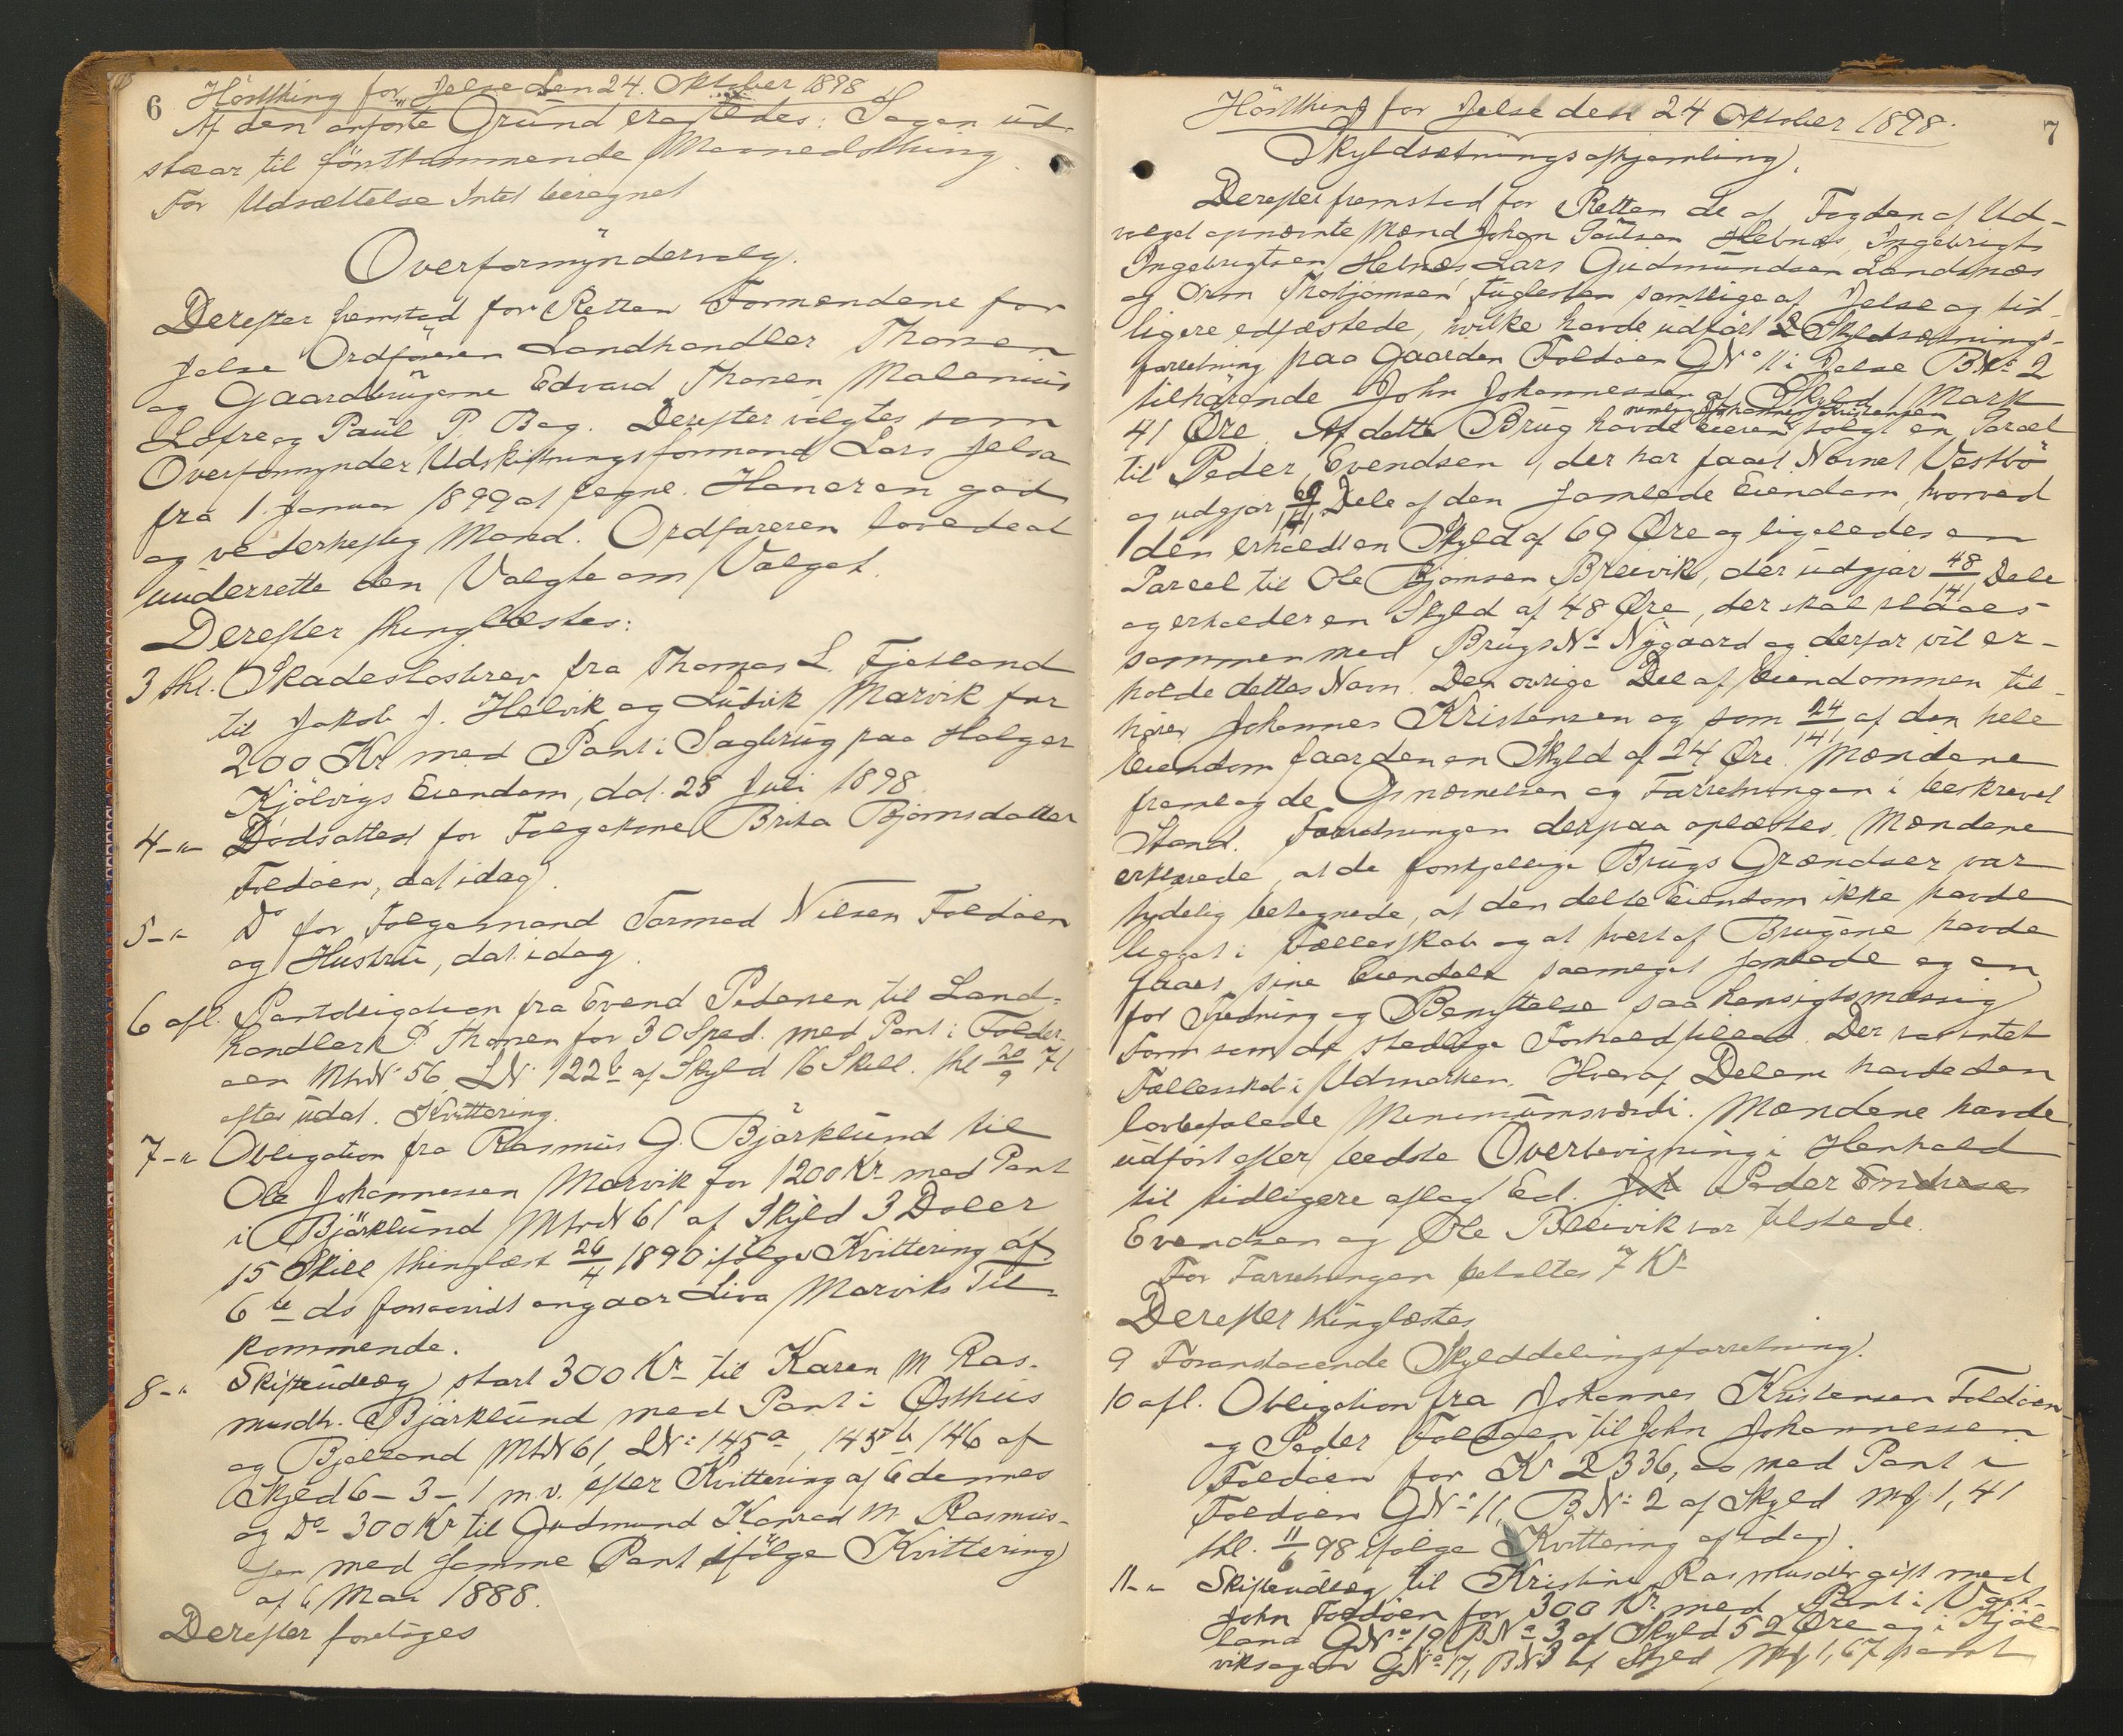 6 Hösthing for Jelse den 24. Oktober 1898
Af den anförte Grund eragtedes: Sagen ud-
staar til förstkommende Maanedsthing.
For Udsættelse Intet beregnet
Overformyndervalg.
Derefter fremstod for Retten Formændene for
Jelse Ordföreren Landhandler Thorsen
og Gaardbrugerne Edvard Thorsen Malenius
Lofre og Paul P. Bag. Derefter valgtes som
Overformynder Udskiftningsformand Lars Jelsa
fra 1. Januar 1899 at regne. Han er en god
og vederheftig Mand. Ordföreren lovede at
underrette den Valgte om Valget.
Derefter thinglæstes:
3 thl. Skadeslösbrev fra Thomas L. Fjetland
til Jakob J. Helvik og Ludvik Marvik for
200 Kr med Pant i Sagbrug paa Holger
Kjölvigs Eiendom, dat. 25 Juli 1898.
4-"- Dödsattest for Folgekone Brita Bjørnsdatter
Foldöen, dat idag.
5-"- Do for Folgemand Tormod Nilsen Foldöen
og Hustru, dat. idag.
6 afl. Pantobligation fra Evend Pedersen til Land-
handler P. Thorsen for 30 Sped. med Pant i Foldö-
en MtrN 56, LN 122b af Skyld 16 Skill. thl 20/9 71
efter udat. Kvittering.
7-"- Obligation fra Rasmus G. Bjärklund til
Ole Johannessen Marvik for 1200 Kr med Pant
i Bjärklund MtrN 61 af Skyld 3 Daler
15 Skill thinglæst 26/4 1890 ifölge Kvittering af
6te ds forsaavidt angaar Liva Marviks Til-
kommende.
8-"- Skifteudlæg stort 300 Kr til Karen M Ras-
musdtr. Bjärklund med Pant i Østhus
og Bjelland MtrN 61, LN: 145a, 145b 146 af
Skyld 6-3-1 m.v. efter Kvittering af 6 dennes
og Do 300 Kr til Gudmund Konrad M. Rasmus-
sen med samme Pant ifölge Kvittering
af 6 Mai 1888.
Derefter foretoges
Hösthing for Jelse den 24 Oktober 1898. 7
Skyldsætningsafhjemling.
Derefter fremstod for Retten de af Fogden af Ud-
valget opnævnte Mænd Johan Paulsen Hebnæs, Ingebrigt
Ingebrigtsen Hebnæs Lars Gudmundsen Landsnæs
og Orm Thorbjörnsen Fuglesten samtlige af Jelse og tid-
ligere edfæstede, hvilke havde udfört Skyldsætnings-
forretning paa Gaarden Foldöen GNo 11 i Jelse BNo 2
tilhörende John Johannessen af Skyld 1 Mark
41 Øre. Af dette Brug havde Eieren nemlig Johannes Kristensen solgt en Parcel
til Peder Evendsen, der har faaet Navnet Vestbö
og udgjör 69/141 Dele af den samlede Eiendom, hvorved
den erholdt en Skyld af 69 Øre og ligeledes en
Parcel til Ole Bjørnsen Breivik, der udgjör 48/141 Dele
og erholder en Skyld af 48 Øre, der skal slaaes
sammen med Brugs No Nygaard og derfor vil er-
holde dettes Navn. Den övrige Del af Eiendommen til-
hører Johannes Kristensen og som 24/141 af den hele
Eiendom faar den en Skyld af 24 Øre. Mændene
fremlagde Opnævnelsen og Forretningen i beskrevet
Stand. Forretningen derpaa oplæstes. Mændene
erklærede, at de forskjellige Brugs Grændser var
tydelig betegnede, at den delte Eiendom ikke havde
ligget i Fællesskab og at hvert af Brugene havde
faaet sine Eiendele saameget samlede og en
for Fredning og Benyttelse saa hensigtsmæssig
Form som de stedlige Forhold tillod. Der var intet
Fællesskab i Udmarken. Hver af Delene havde den
lovbefalede Minimumsværdi. Mændene havde
udfört efter bedste Overbevisning i Henhold
til tidligere aflagt Ed. Peder Endresen
Evendsen og Ole Breivik var tilstede.
For Forretningen betaltes 7 Kr
Derefter thinglæstes
9 Foranstaaende Skylddelingsforretning.
10 afl. Obligation fra Johannes Kristensen Foldöen
og Peder Foldöen til John Johannessen
Foldöen for Kr 2336,00 med Pant i
Foldöen GNo 11, BNo 2 af Skyld M 1,41
thl. 11/6 98 ifölge Kvittering af idag.
11-"- Skifteudlæg til Kristine Rasmusdtr gift med
John Foldöen for 300 Kr med Pant i Vat-
land GNo 19 BNo 3 af Skyld 52 Øre og i Kjöl-
viksagen GNo 17, BN 3 af Skyld M 1,67 samt